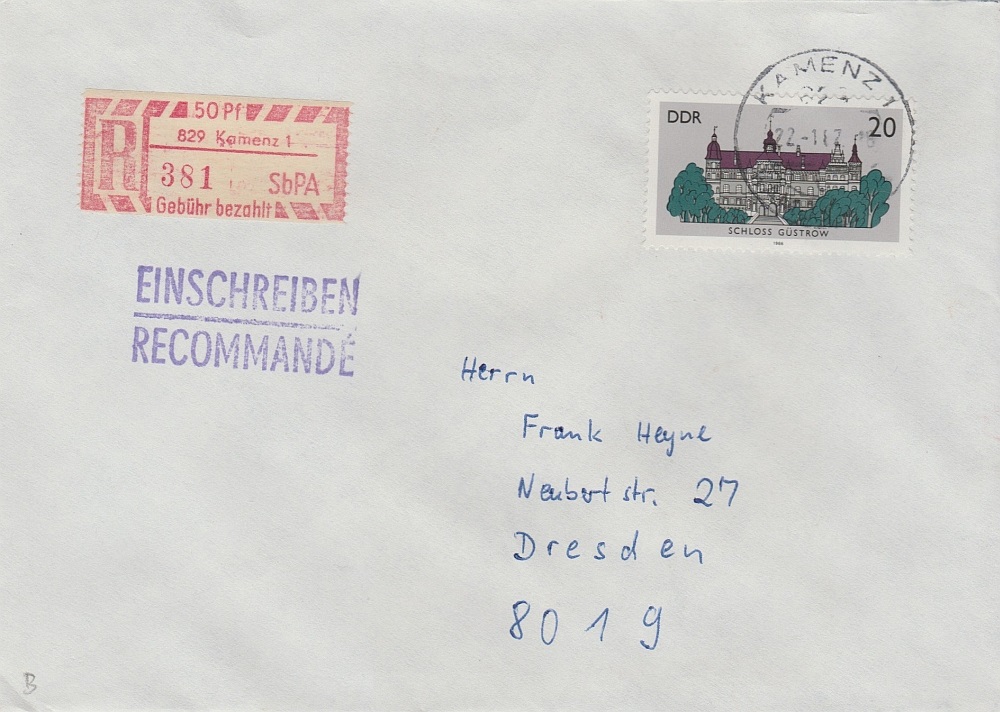 .50 Pf
829 Kamenz 1
R
381
SbPA
Gebühr bezahlt
EINSCHREIBEN
RECOMMANDÉ
KAMENZ 1
829
DDR
20
SCHLOSS GÜSTROW
1986
Herrn
Frank Heyne
Neubertstr. 27
Dresden
8019
B